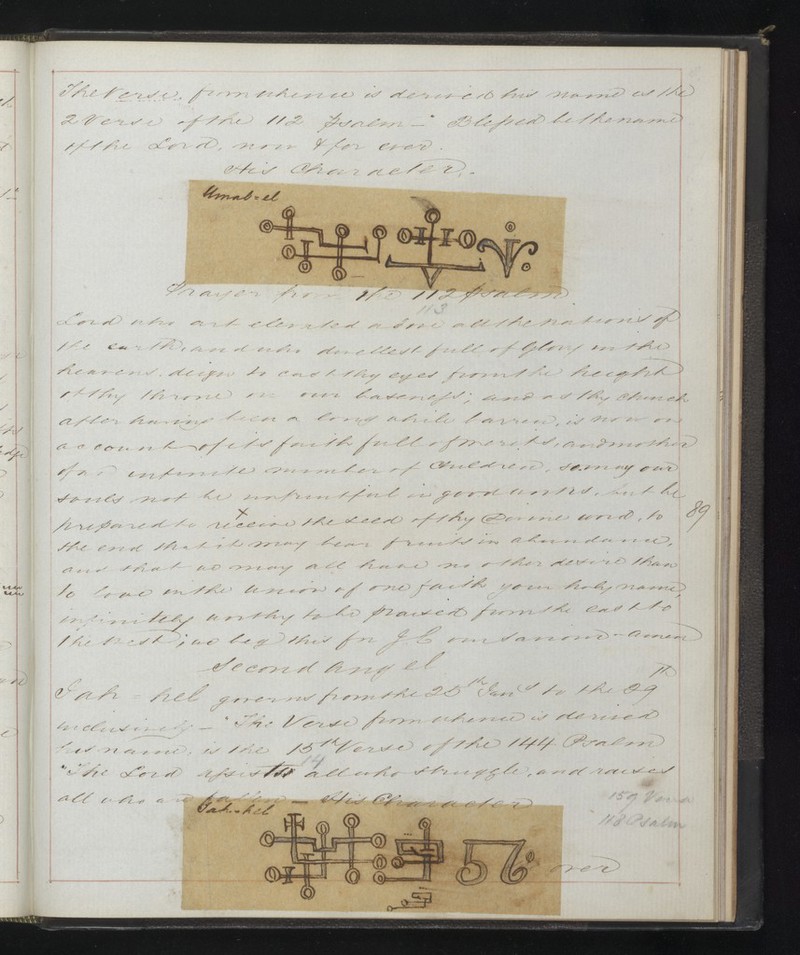 The Verse, from whence is derived his name is the
2 Verse of the 112 Psalm — "Blessed be the name
of the Lord, now & for ever.
His Character.
Umab=el
Prayer from the 112 Psalm
113
Lord who art elevated above all the nations of
the earth, and who dwellest full of Glory in the
heavens, deign to cast thy eyes from the height
of thy throne on our baseness; and as thy Church
after having been a long while barren, is now on
account of its faith full of merits, and mother
of an infinite number of Children, so may our
souls not be unfruitful in good works, but be
prepared to receive the seed of thy Divine word, to
89
the end that it may bear fruits in abundance,
and that we may all have no other desire than
to love in the union of one faith your holy name,
infinitely worthy to be praised from the east to
the West; we beg this for J C our Saviour - Amen
Second Angel
Jah-hel governs from the 25th Jany to the 29th
inclusively — "The Verse from whence is derived
his name, is the 15th Verse of the 144 Psalm
14
"The Lord assists all who struggle, and raises
all who are fallen — His Character
159 Verse
118 Psalm
Jah-hel
over